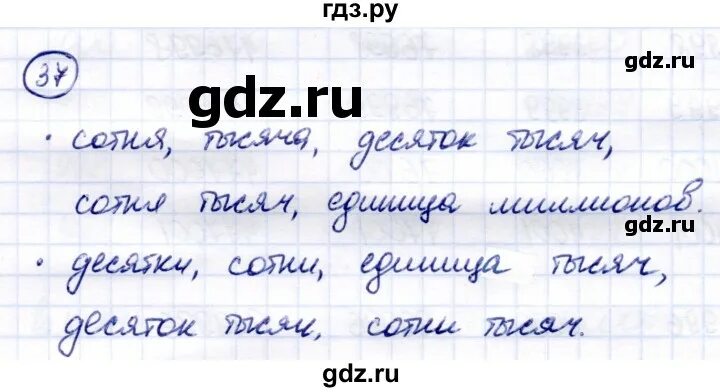 гдз.ру
37
gdz.ru
• сотня, тысяча, десяток тысяч,
сотня тысяч, единица миллионов.
gdz.ru
gdz.ru
• десятки, сотни, единица тысяч,
десяток тысяч, сотни тысяч.
gdz.ru